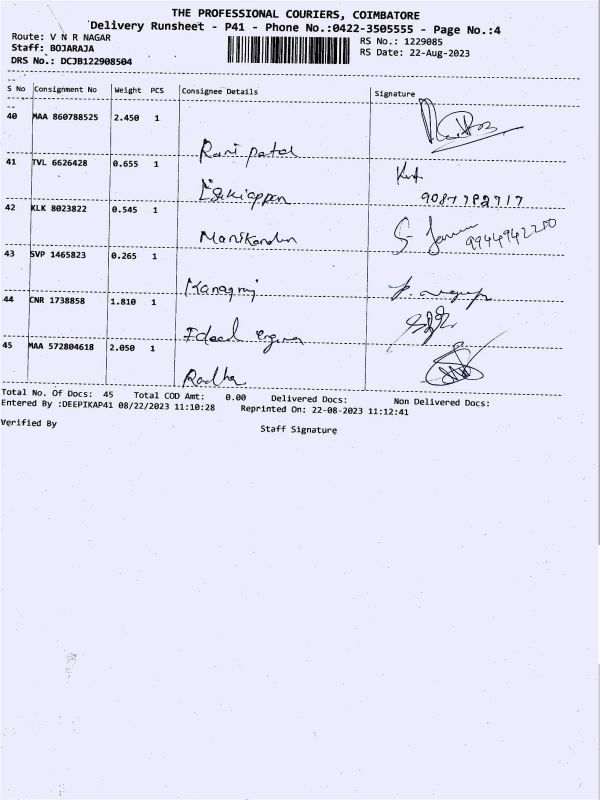 THE PROFESSIONAL COURIERS, COIMBATORE
Delivery Runsheet - P41 - Phone No.:0422-3505555 - Page No.:4
Route: V N R NAGAR
RS No.: 1229085
Staff: BOJARAJA
RS Date: 22-Aug-2023
DRS No.: DCJB122908504
S No Consignment No Weight PCS Consignee Details Signature
40 MAA 860788525 2.450 1
Rani Patal
41 TVL 6626428 0.655 1
Esakiappan
9087782717
42 KLK 8023822 0.545 1
Manikandan
9944942250
43 SVP 1465823 0.265 1
Kanagraj
44 CNR 1738858 1.810 1
Ideal
45 MAA 572804618 2.050 1
Radha
Total No. Of Docs: 45 Total COD Amt: 0.00 Delivered Docs: Non Delivered Docs:
Entered By :DEEPIKAP41 08/22/2023 11:10:28 Reprinted On: 22-08-2023 11:12:41
Verified By
Staff Signature